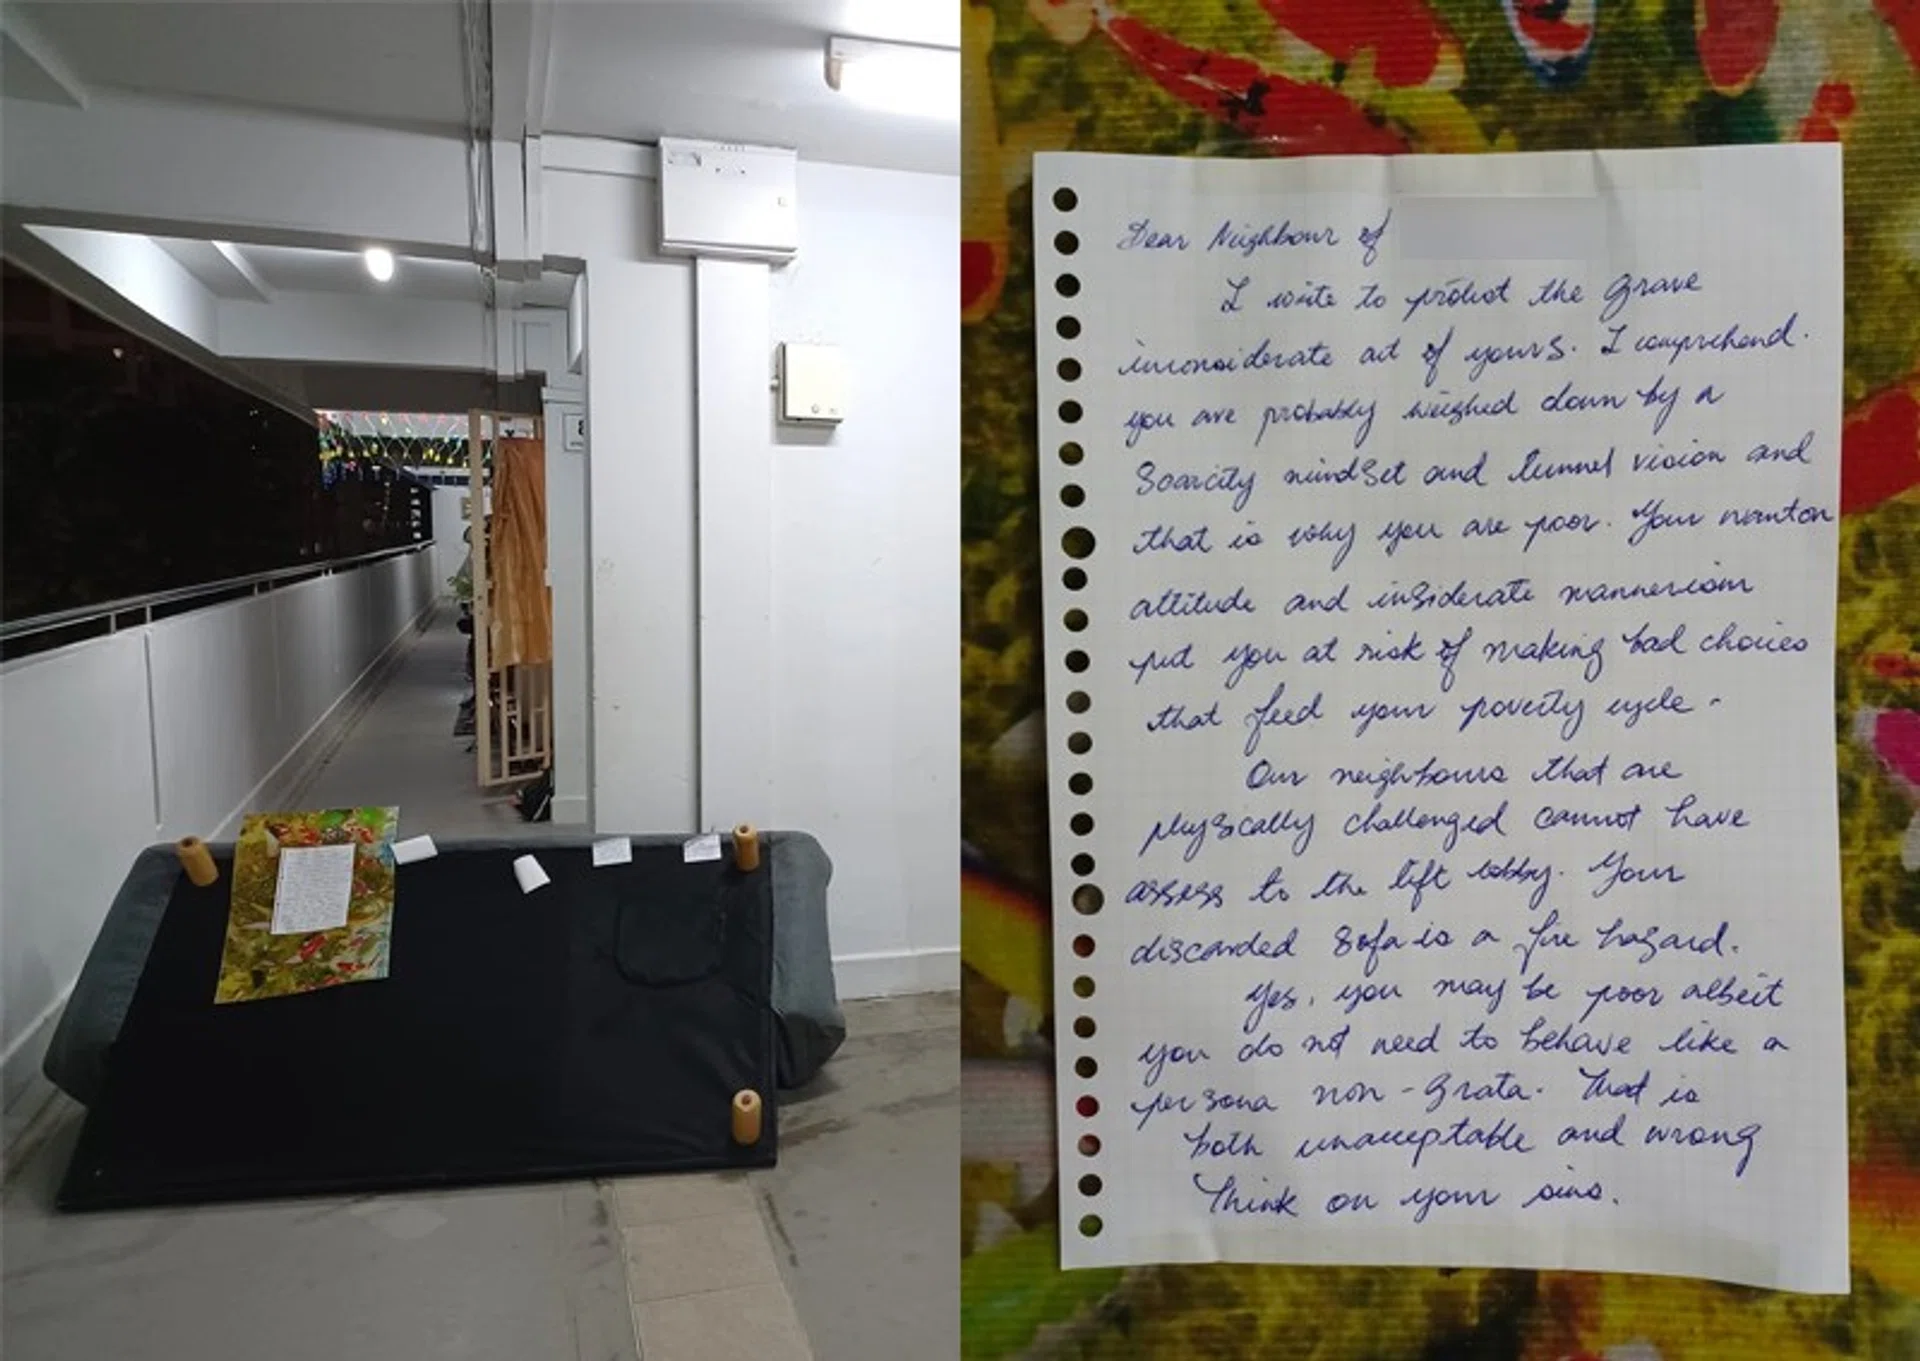 Dear Neighbour of
I write to protest the grave
inconsiderate act of yours. I comprehend.
you are probably weighed down by a
Scarcity mindset and tunnel vision and
that is why you are poor. Your wanton
attitude and insiderate mannerism
put you at risk of making bad choices
that feed your poverty cycle.
Our neighbours that are
physically challenged cannot have
assess to the lift lobby. Your
discarded sofa is a fire hazard.
Yes, you may be poor albeit
you do not need to behave like a
persona non-grata. That is
both unacceptable and wrong
Think on your sins.